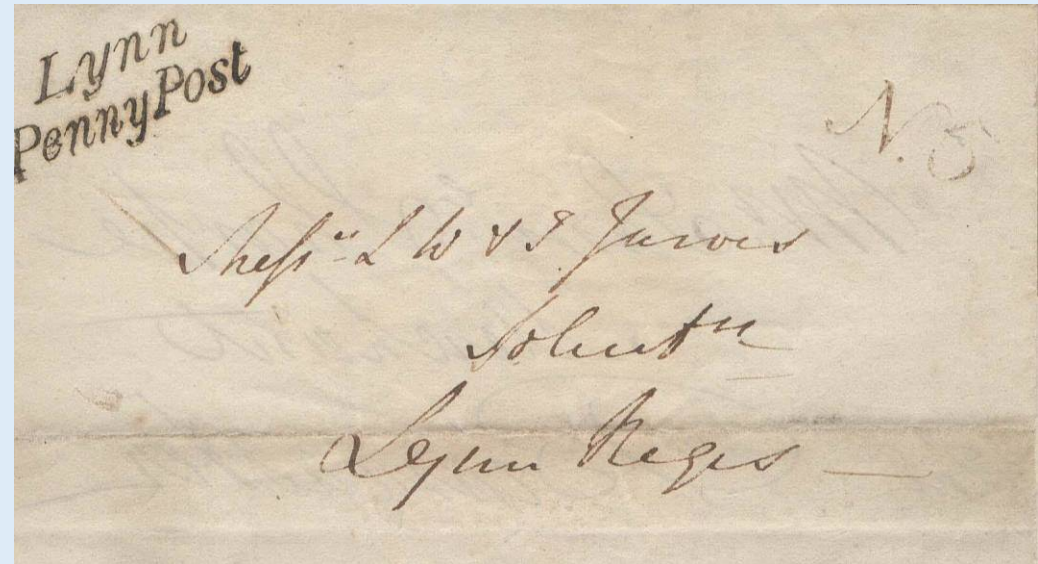 Lynn
Penny Post
N. 5
Messrs L W & J Jarvis
Solicitrs
Lynn Regis